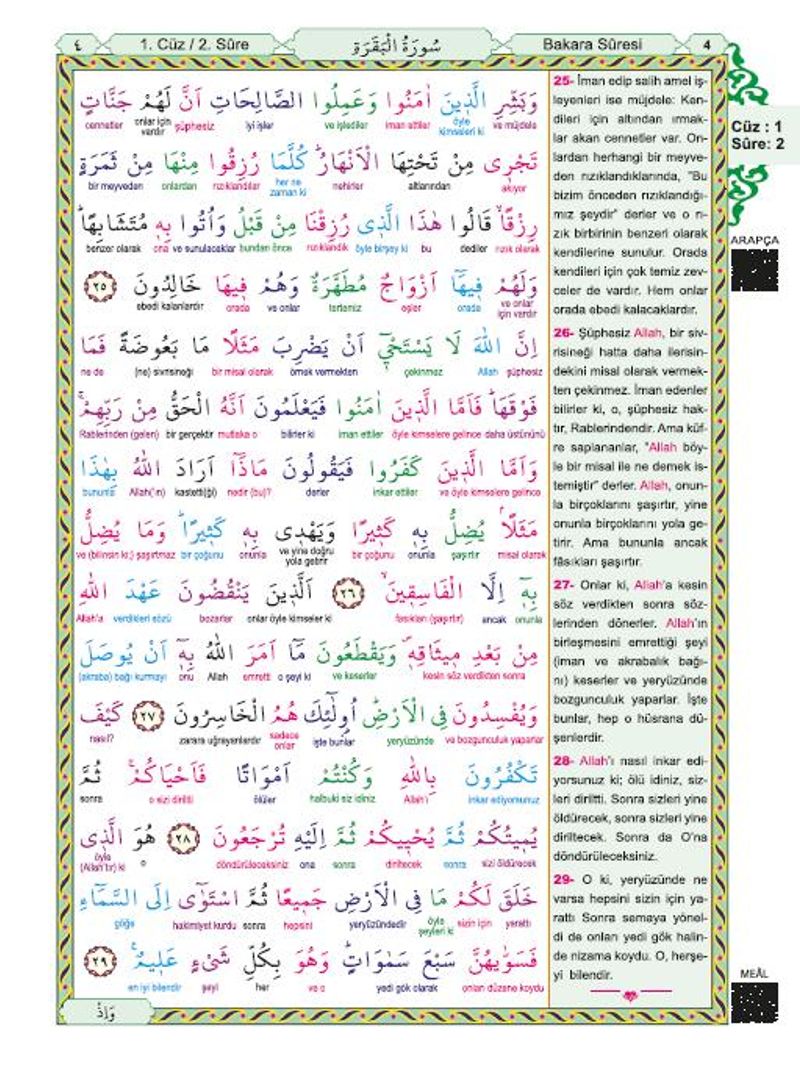 ٤
1. Cüz / 2. Sûre
سُورَةُ الْبَقَرَةِ
Bakara Sûresi
4
وَبَشِّرِ الَّذِينَ اٰمَنُوا وَعَمِلُوا الصَّالِحَاتِ اَنَّ لَهُمْ جَنَّاتٍ
ve müjdele öyle kimseleri ki iman ettiler ve işlediler iyi işler şüphesiz onlar için vardır cennetler
تَجْرٖى مِنْ تَحْتِهَا الْاَنْهَارُۜ كُلَّمَا رُزِقُوا مِنْهَا مِنْ ثَمَرَةٍ
akıyor altlarından nehirler her ne zaman ki rızıklandılar onlardan bir meyveden
رِزْقًاۙ قَالُوا هٰذَا الَّذٖى رُزِقْنَا مِنْ قَبْلُ وَاُتُوا بِهٖ مُتَشَابِهًاۜ
rızık olarak dediler bu öyle birşey ki rızıklandık bundan önce ve sunulacaklar ona benzer olarak
وَلَهُمْ فٖيهَٓا اَزْوَاجٌ مُطَهَّرَةٌ وَهُمْ فٖيهَا خَالِدُونَ ﴿٢٥﴾
ve onlar için vardır orada eşler tertemiz ve onlar orada ebedi kalanlardır
اِنَّ اللّٰهَ لَا يَسْتَحْيٖٓ اَنْ يَضْرِبَ مَثَلًا مَا بَعُوضَةً فَمَا
şüphesiz Allah çekinmez örnek vermekten bir misal olarak (ne) sivrisineği ne de
فَوْقَهَاۜ فَاَمَّا الَّذٖينَ اٰمَنُوا فَيَعْلَمُونَ اَنَّهُ الْحَقُّ مِنْ رَبِّهِمْۚ
daha üstününü öyle kimselere gelince iman ettiler bilirler ki mutlaka o bir gerçektir Rablerinden (gelen)
وَاَمَّا الَّذٖينَ كَفَرُوا فَيَقُولُونَ مَاذَٓا اَرَادَ اللّٰهُ بِهٰذَا
ve öyle kimselere gelince inkar ettiler derler nedir (bu)? kastetti(ği) Allah('ın) bununla
مَثَلًاۢ يُضِلُّ بِهٖ كَثٖيرًا وَيَهْدٖى بِهٖ كَثٖيرًاۜ وَمَا يُضِلُّ
misal olarak şaşırtır onunla bir çoğunu ve yine doğru yola getirir onunla bir çoğunu ve (bilinsin ki;) şaşırtmaz
بِهٖٓ اِلَّا الْفَاسِقٖينَۙ ﴿٢٦﴾ اَلَّذٖينَ يَنْقُضُونَ عَهْدَ اللّٰهِ
onunla ancak fasıkları (şaşırtır) onlar öyle kimseler ki bozarlar verdikleri sözü Allah'a
مِنْ بَعْدِ مٖيثَاقِهٖۖ وَيَقْطَعُونَ مَٓا اَمَرَ اللّٰهُ بِهٖٓ اَنْ يُوصَلَ
kesin söz verdikten sonra ve keserler o şeyi ki emretti Allah onu (akraba) bağı kurmayı
وَيُفْسِدُونَ فِى الْاَرْضِۜ اُولٰٓئِكَ هُمُ الْخَاسِرُونَ ﴿٢٧﴾ كَيْفَ
ve bozgunculuk yaparlar yeryüzünde işte bunlar sadece onlar zarara uğrayanlardır nasıl?
تَكْفُرُونَ بِاللّٰهِ وَكُنْتُمْ اَمْوَاتًا فَاَحْيَاكُمْۚ ثُمَّ
inkar ediyorsunuz Allah'ı halbuki siz idiniz ölüler o sizi diriltti sonra
يُمٖيتُكُمْ ثُمَّ يُحْيٖيكُمْ ثُمَّ اِلَيْهِ تُرْجَعُونَ ﴿٢٨﴾ هُوَ الَّذٖى
sizi öldürecek sonra diriltecek sonra ona döndürüleceksiniz o öyle (Allah'tır) ki
خَلَقَ لَكُمْ مَا فِى الْاَرْضِ جَمٖيعًا ثُمَّ اسْتَوٰٓى اِلَى السَّمَٓاءِ
yarattı sizin için öyle şeyleri ki yeryüzündedir hepsini sonra hakimiyet kurdu göğe
فَسَوّٰيهُنَّ سَبْعَ سَمٰوَاتٍۜ وَهُوَ بِكُلِّ شَیْءٍ عَلٖيمٌۚ ﴿٢٩﴾
onları düzene koydu yedi gök olarak ve o her şeyi en iyi bilendir
وَاِذْ
25- İman edip salih amel iş-
leyenleri ise müjdele: Ken-
dileri için altından ırmak-
lar akan cennetler var. On-
lardan herhangi bir meyve-
den rızıklandıklarında, "Bu
bizim önceden rızıklandığı-
mız şeydir" derler ve o rı-
zık birbirinin benzeri olarak
kendilerine sunulur. Orada
kendileri için çok temiz zev-
celer de vardır. Hem onlar
orada ebedi kalacaklardır.
26- Şüphesiz Allah, bir siv-
risineği hatta daha ilerisin-
dekini misal olarak vermek-
ten çekinmez. İman edenler
bilirler ki, o, şüphesiz hak-
tır, Rablerindendir. Ama küf-
re saplananlar, "Allah böy-
le bir misal ile ne demek is-
temiştir" derler. Allah, onun-
la birçoklarını şaşırtır, yine
onunla birçoklarını yola ge-
tirir. Ama bununla ancak
fâsıkları şaşırtır.
27- Onlar ki, Allah'a kesin
söz verdikten sonra söz-
lerinden dönerler. Allah'ın
birleşmesini emrettiği şeyi
(iman ve akrabalık bağı-
nı) keserler ve yeryüzünde
bozgunculuk yaparlar. İşte
bunlar, hep o hüsrana dü-
şenlerdir.
28- Allah'ı nasıl inkar edi-
yorsunuz ki; ölü idiniz, siz-
leri diriltti. Sonra sizleri yine
öldürecek, sonra sizleri yine
diriltecek. Sonra da O'na
döndürüleceksiniz.
29- O ki, yeryüzünde ne
varsa hepsini sizin için ya-
rattı Sonra semaya yönel-
di de onları yedi gök halin-
de nizama koydu. O, herşe-
yi bilendir.
Cüz : 1
Sûre: 2
ARAPÇA
MEÂL